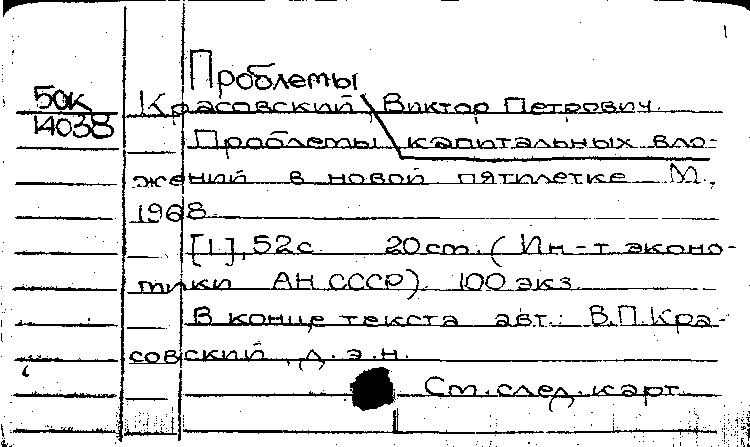 Проблемы
50к
14038
Красовский, Виктор Петрович.
Проблемы капитальных вло-
жений в новой пятилетке М.,
1968.
[1], 52с. 20 см. (Ин-т эконо-
мики АН СССР). 100 экз.
В конце текста авт.: В.П.Кра-
совский, д.э.н.
См. след. карт.